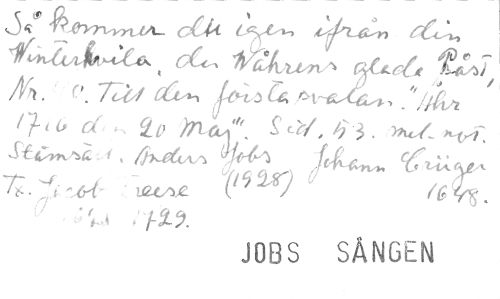 Så kommer du igen ifrån din
Winterhvila, du Wåhrens glada Påst,
Nr. Till den första svalan." Åhr
1716 den 20 Maj". Sid. 53. mel. not.
Stämsätt. Anders Jobs Johann Crüger
Tx. Jacob Freese (1928) 1648.
1729.
JOBS SÅNGEN